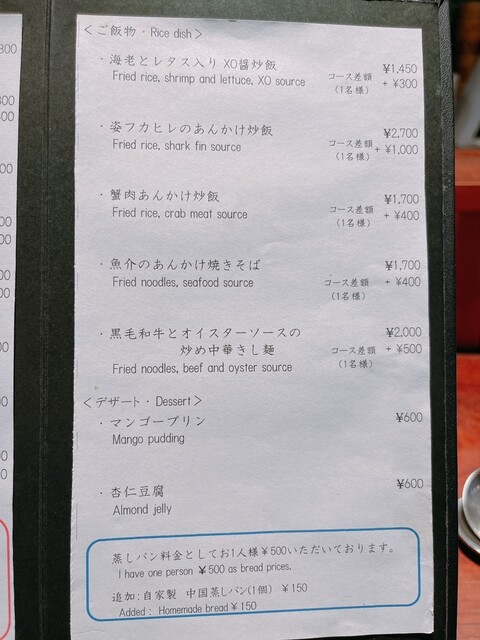 <ご飯物・Rice dish>
・海老とレタス入り XO醤炒飯 ¥1,450
Fried rice, shrimp and lettuce, XO source コース差額 + ¥300
(1名様)
・姿フカヒレのあんかけ炒飯 ¥2,700
Fried rice, shark fin source コース差額 + ¥1,000
(1名様)
・蟹肉あんかけ炒飯 ¥1,700
Fried rice, crab meat source コース差額 + ¥400
(1名様)
・魚介のあんかけ焼きそば ¥1,700
Fried noodles, seafood source コース差額 + ¥400
(1名様)
・黒毛和牛とオイスターソースの ¥2,000
炒め中華きし麺 コース差額 + ¥500
Fried noodles, beef and oyster source (1名様)
<デザート・Dessert>
・マンゴープリン ¥600
Mango pudding
・杏仁豆腐 ¥600
Almond jelly
蒸しパン料金としてお1人様¥500いただいております。
I have one person ¥500 as bread prices.
追加:自家製 中国蒸しパン(1個) ¥150
Added : Homemade bread ¥150